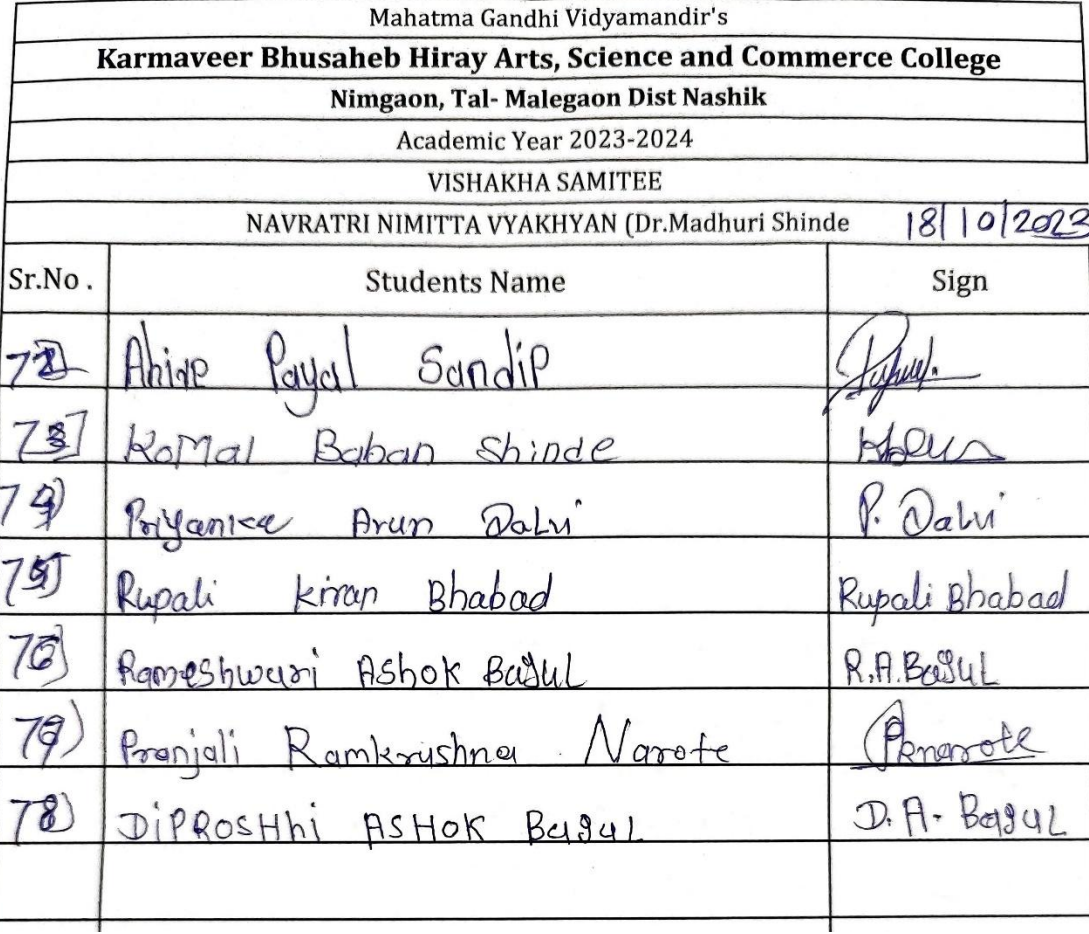 Mahatma Gandhi Vidyamandir's
Karmaveer Bhusaheb Hiray Arts, Science and Commerce College
Nimgaon, Tal- Malegaon Dist Nashik
Academic Year 2023-2024
VISHAKHA SAMITEE
NAVRATRI NIMITTA VYAKHYAN (Dr.Madhuri Shinde 18/10/2023
Sr.No. Students Name Sign
72) Ahire Payal Sandip
73) KoMal Baban Shinde
74) Priyanka Arun Dalvi P. Dalvi
75) Rupali kiran Bhabad Rupali Bhabad
76) Rameshwari AShok Bagul R.A.Bagul
77) Pranjali Ramkrushna Narote
78) DiPROSHhi ASHOK Bagul D.A. Bagul